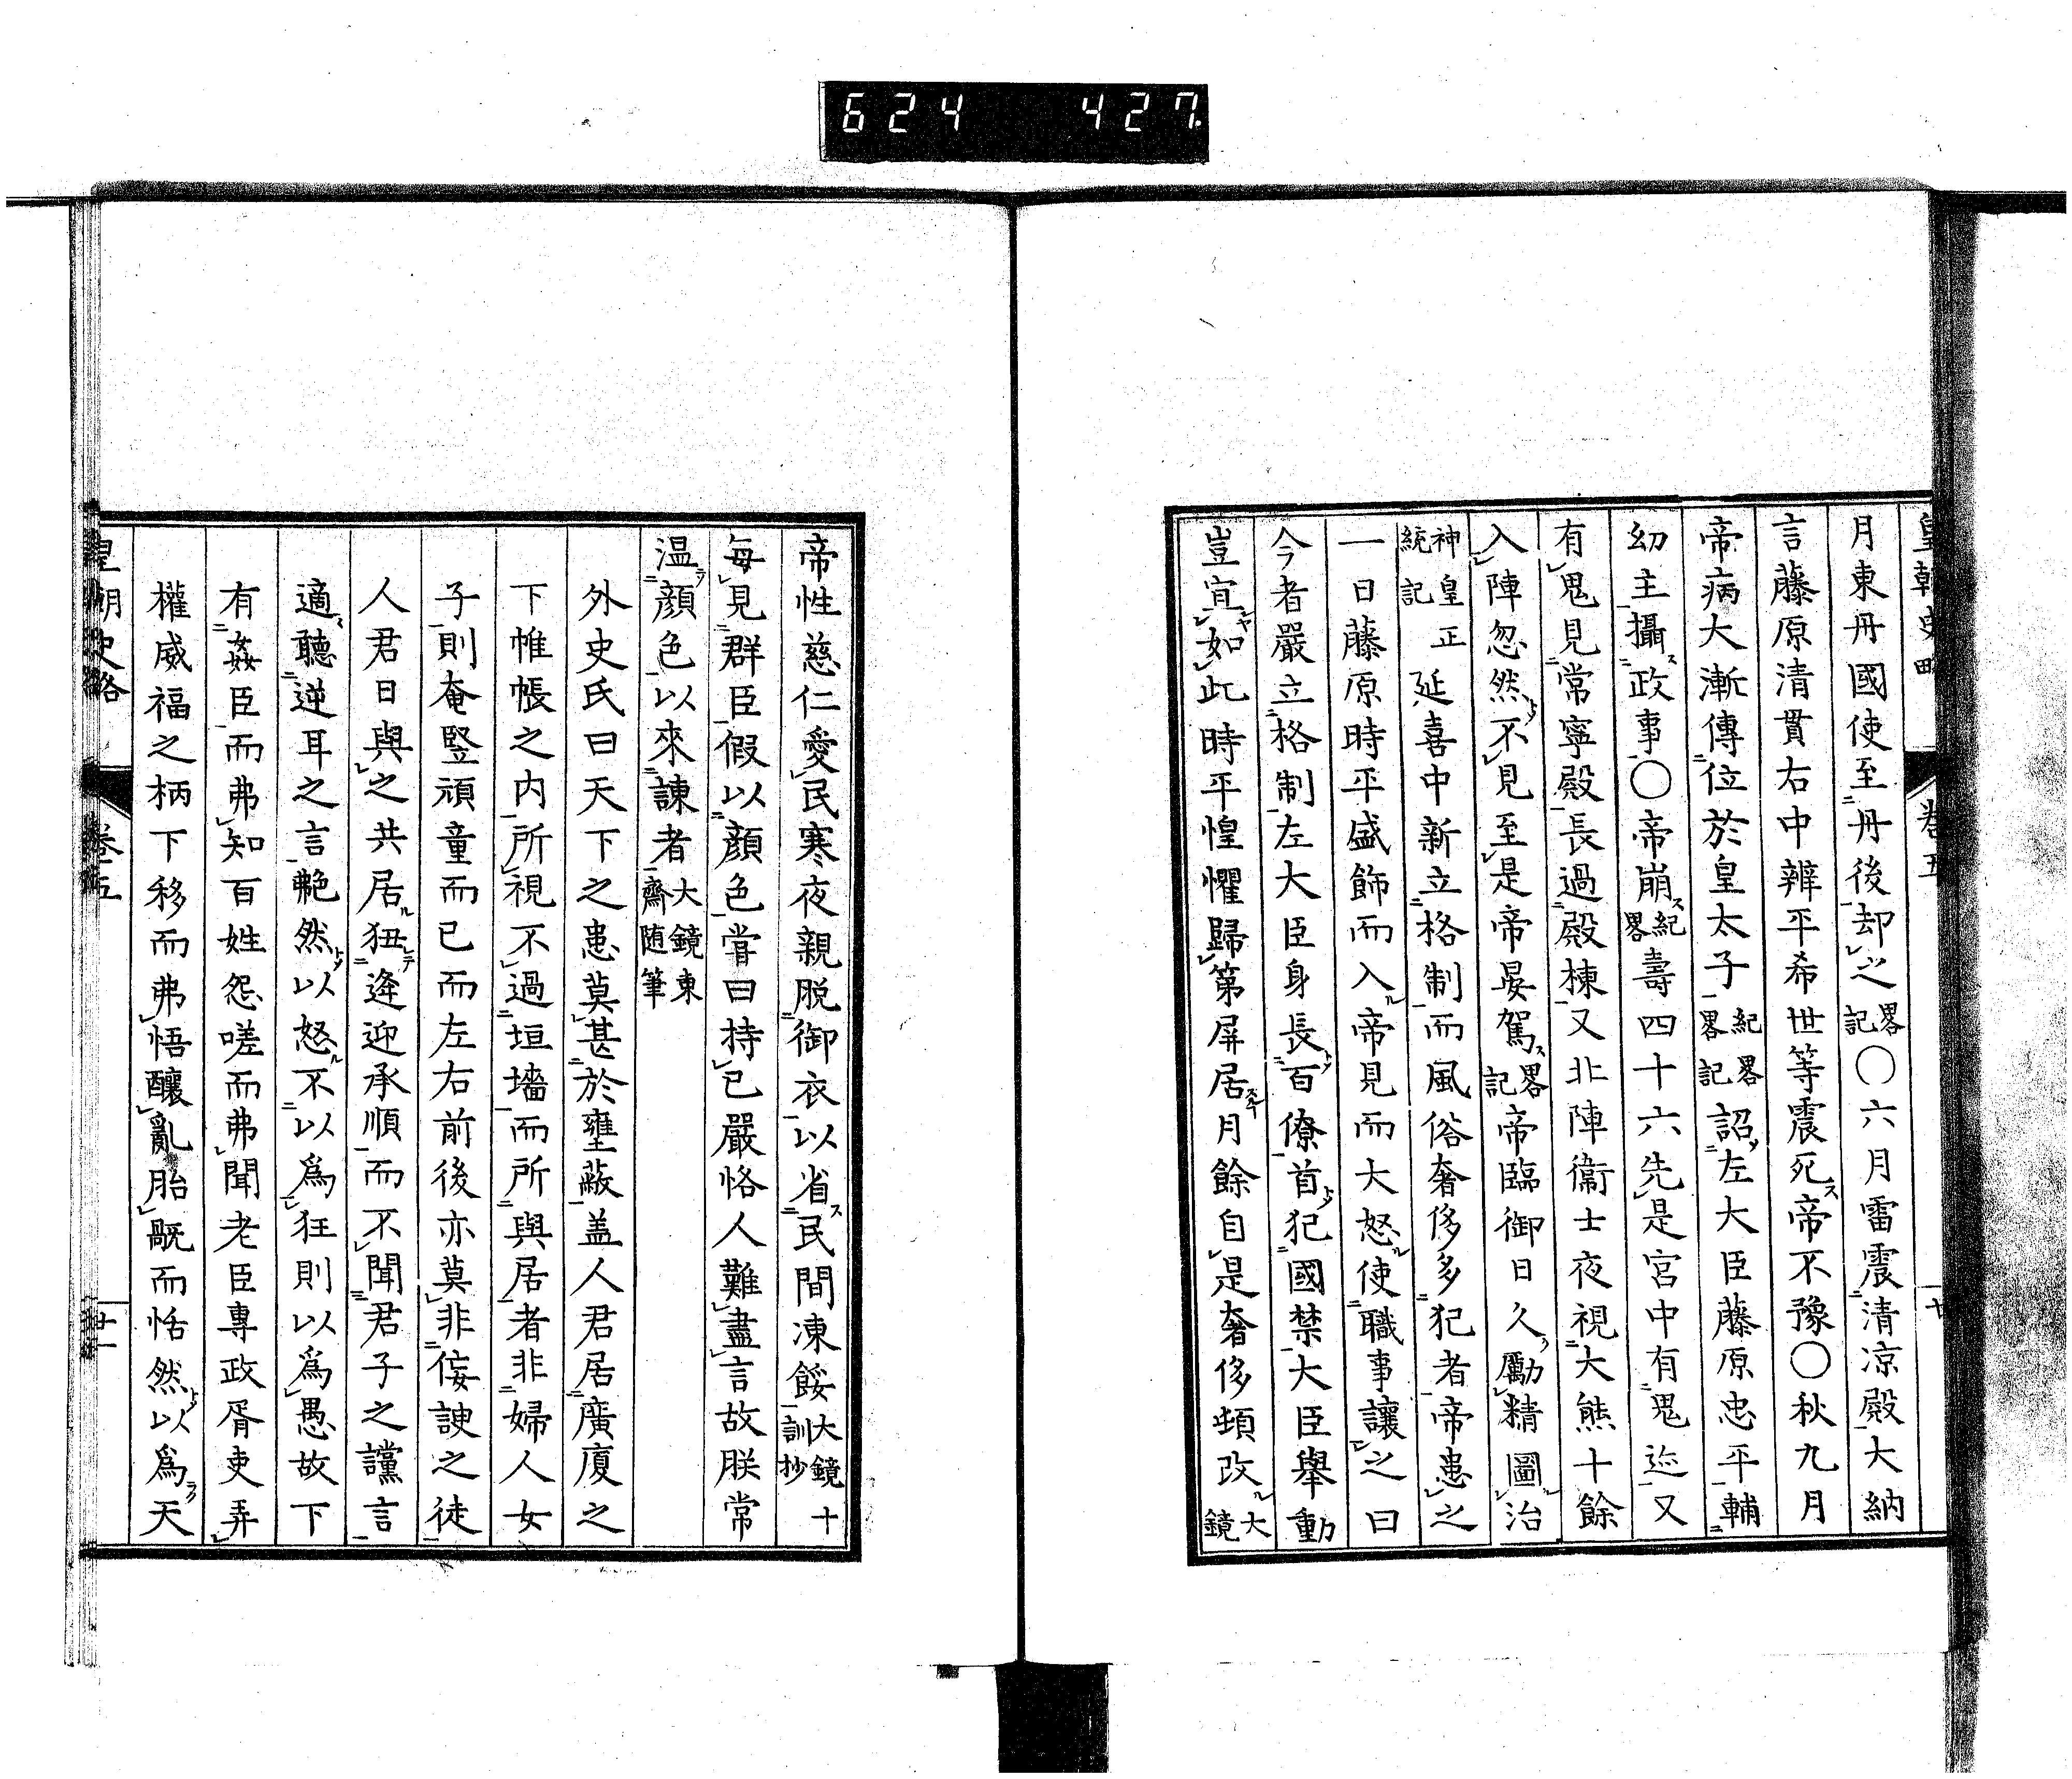 624 427
皇朝史略 卷五 廿
月東丹國使至丹後却之畧記〇六月雷震清凉殿大納
言藤原清貫右中辨平希世等震死帝不豫〇秋九月
帝病大漸傳位於皇太子紀畧畧記詔左大臣藤原忠平輔
幼主攝政事〇帝崩紀畧壽四十六先是宮中有鬼迹又
有鬼見常寧殿長過殿棟又北陣衞士夜視大熊十餘
入陣忽然不見至是帝晏駕畧記帝臨御日久勵精圖治
神皇正統記延喜中新立格制而風俗奢侈多犯者帝患之
一日藤原時平盛飾而入帝見而大怒使職事讓之曰
今者嚴立格制左大臣身長百僚首犯國禁大臣舉動
豈宜如此時平惶懼歸第屏居月餘自是奢侈頓改大鏡
帝性慈仁愛民寒夜親脱御衣以省民間凍餒大鏡十訓抄
每見群臣假以顏色嘗曰持已嚴恪人難盡言故朕常
温顏色以來諫者大鏡東齋随筆
外史氏曰天下之患莫甚於壅蔽盖人君居廣廈之
下帷帳之内所視不過垣墻而所與居者非婦人女
子則奄豎頑童而已而左右前後亦莫非侫諛之徒
人君日與之共居狃逢迎承順而不聞君子之讜言
適聽逆耳之言艴然以怒不以爲狂則以爲愚故下
有姦臣而弗知百姓怨嗟而弗聞老臣專政胥吏弄
權威福之柄下移而弗悟釀亂胎嘅而恬然以爲天
皇朝史略 卷五 廿一